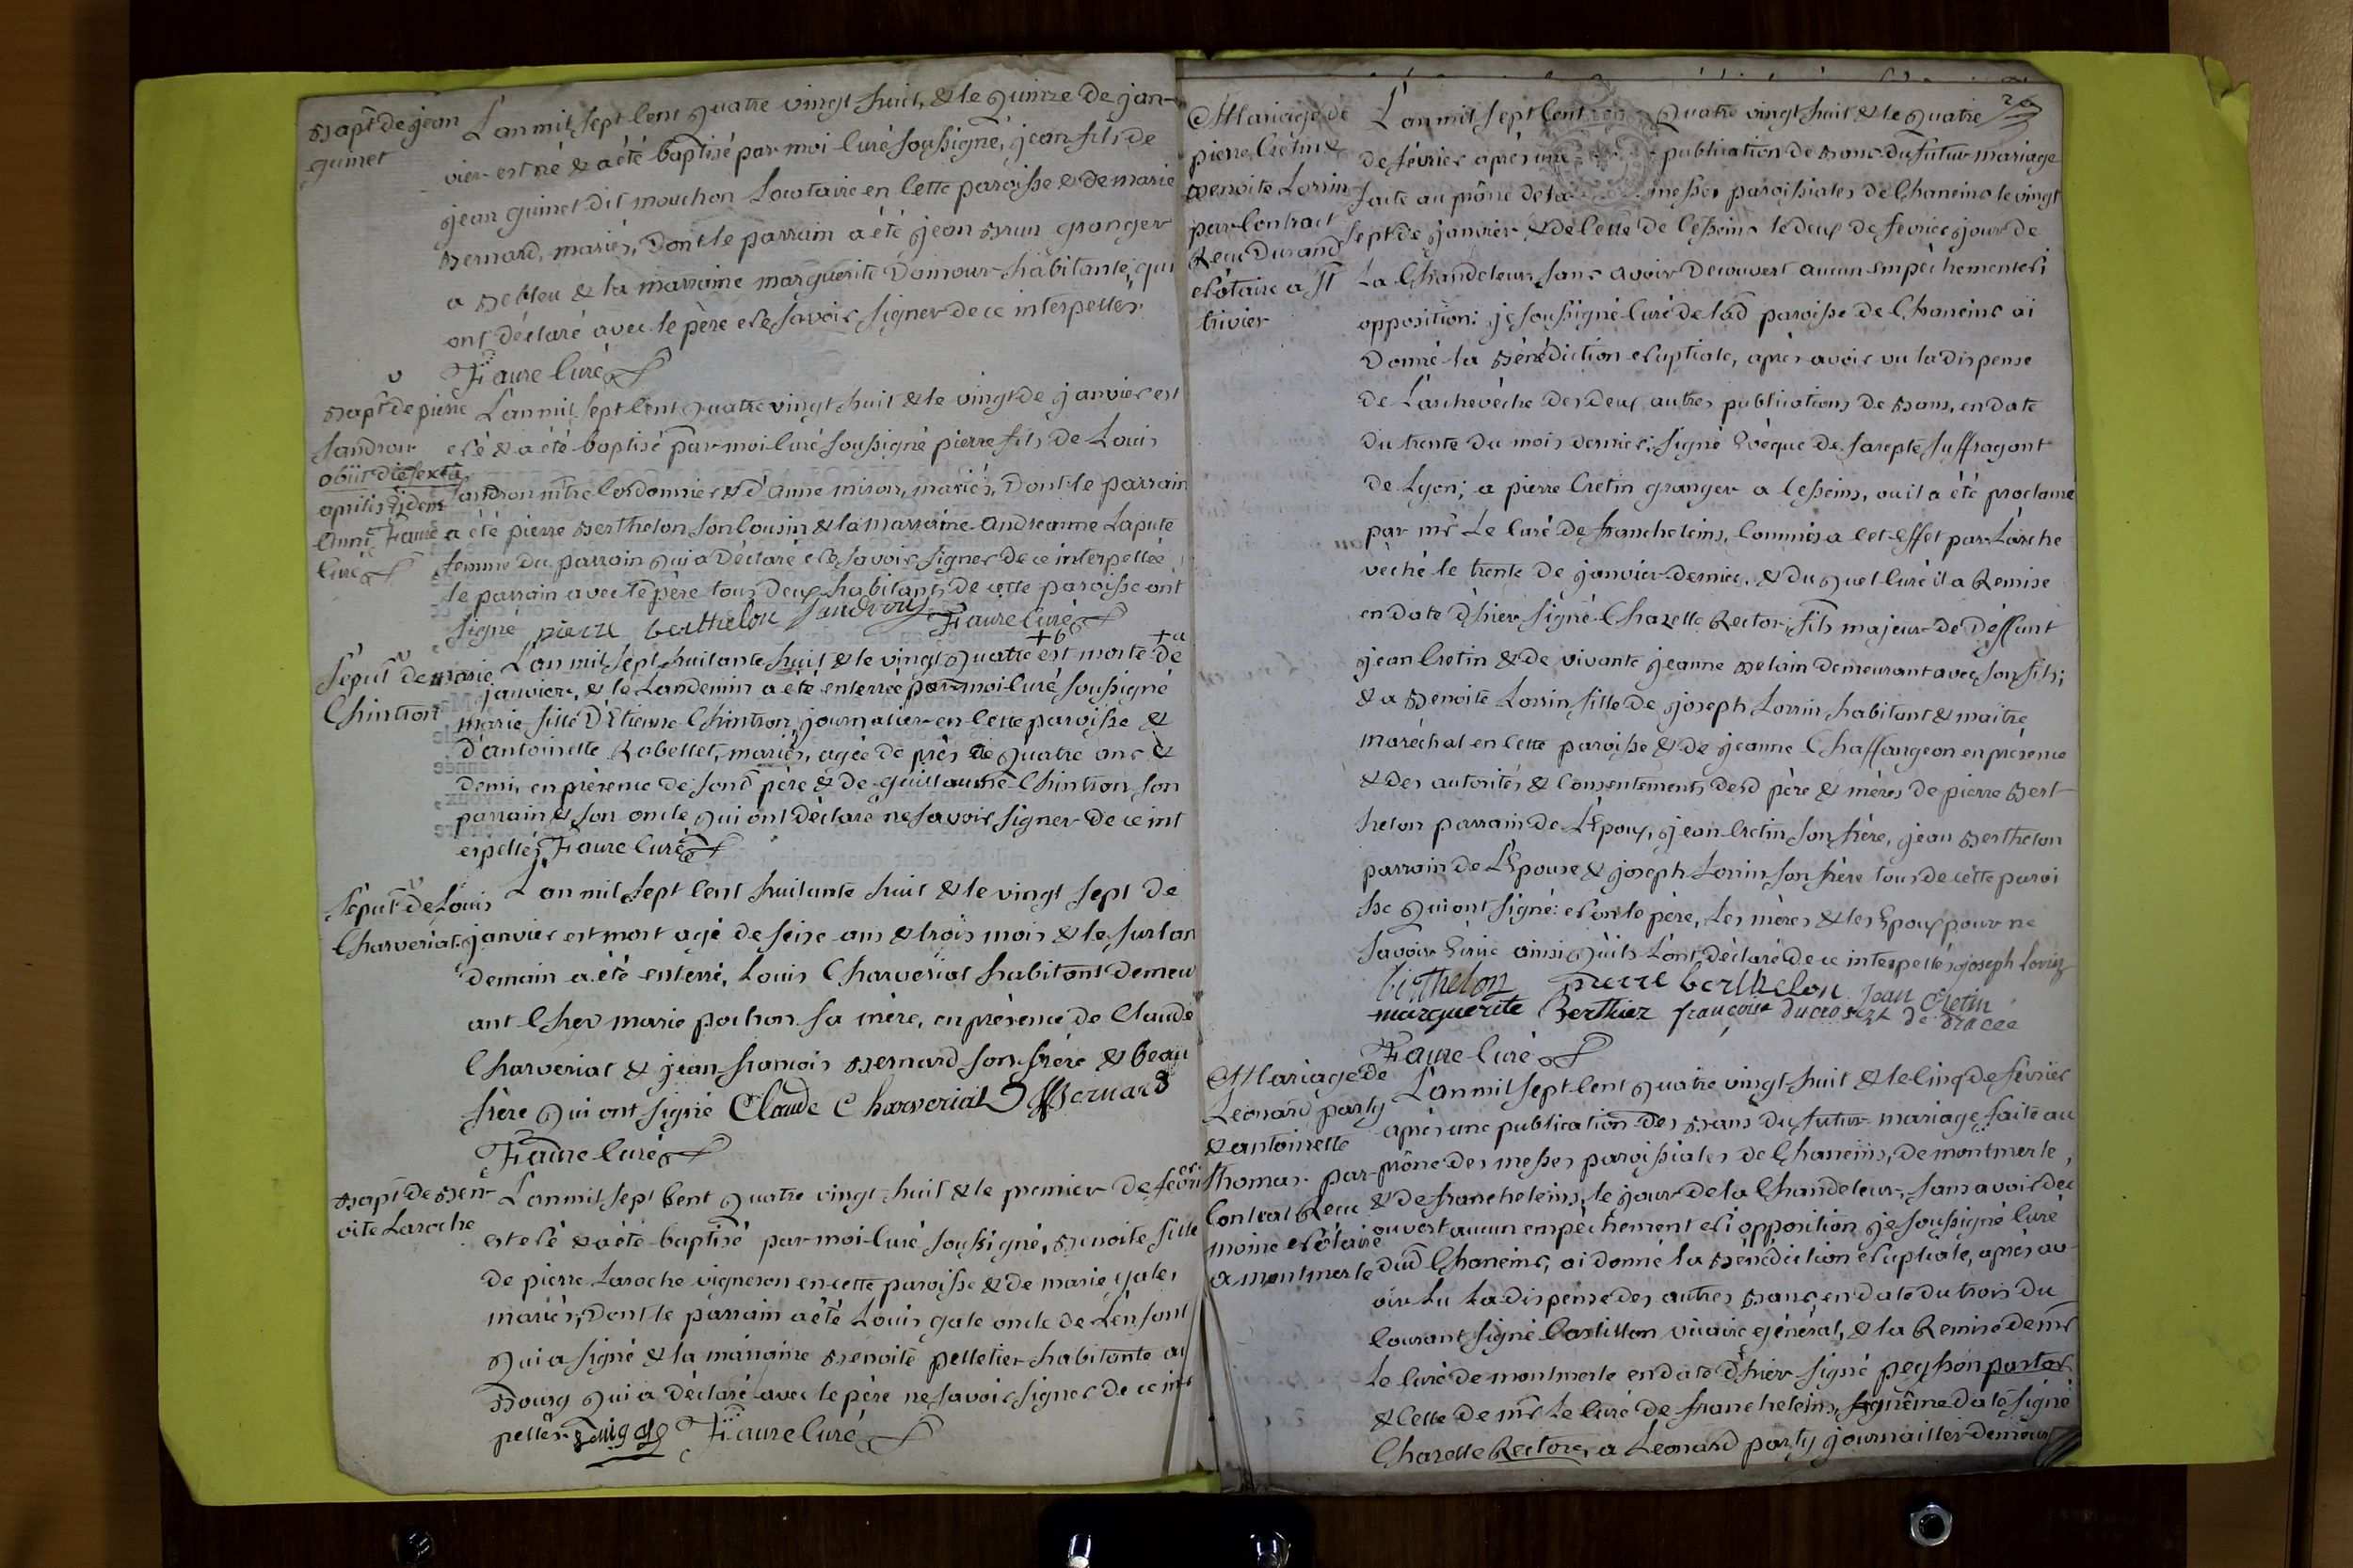 Bapt de jean
guinet
L'an mil sept Cent quatre vingt huit, & le quinze de jan-
vier est né & a été baptisé par moi Curé soussigné, jean fils de
jean guinet dit mouchon Locataire en Cette paroisse & de marie
Bernard, mariés, Dont le parrain a été jean Brun granger
a Bebleu & la marraine marguerite Damour habitante, qui
ont déclaré avec le père Ne savoir signer de ce interpellés.
Faure Curé
Bapt de pierre
Sandron
obiit die sexta
aprilis ejdem
Anni Faure
Curé
L'an mil sept Cent quatre vingt huit & le vingt de janvier est
Né & a été baptisé par moi Curé soussigné pierre fils de Louis
Sandron mtre Cordonnier & d'anne miron, mariés, Dont le parrain
a été pierre Berthelon son Cousin & la marraine andreanne Lapute
femme du parrain qui a Déclaré Ne savoir signer de ce interpellée
le parrain avec le père tous deux habitants de cette paroisse ont
signé pierre berthelon Sandron Faure Curé
Sepult de marie
Chintron
L'an mil sept huitante huit & le vingt quatre +b est morte de +a
janvier, & le Landemin a été enterrée par moi Curé soussigné
marie fille D'Etienne Chintron, journalier en Cette paroisse &
d'antoinette Robellet, mariés, agée de près de quatre ans &
demi, en présence de sond père & de guillaume Chintron son
parrain & son oncle qui ont déclaré ne savoir signer de ce int
erpellés Faure Curé
Sepult de Louis
Charveriat
L'an mil sept Cent huitante huit & le vingt sept de
janvier est mort agé de seise ans & trois mois & le surlan
demain a été enterré, Louis Charveriat habitant demeu
ant Cher marie pochon sa mère, en présence de Claude
Charveriat & jean francois Bernard son frère & beau
frère qui ont signé Claude Charveriat J f Bernard
Faure Curé
Bapt de Ben
oite Laroche
L'an mil sept Cent quatre vingt huit & le premier de fevrier
est Né & a été baptisé par moi Curé soussigné, Benoite fille
de pierre Laroche vigneron en cette paroisse & de marie gale,
mariés; Dont le parrain a été Louis gale oncle de L'enfant
qui a signé & la marraine Benoite pelletier habitante au
Bourg qui a déclaré avec le père ne savoir signer de ce inter
pellés Faure Curé
20
Mariage de
pierre Cretin &
Benoite Lorrin
par Contract
Recu Durand
Notaire a St
trivier
L'an mil sept Cent quatre vingt huit & le quatre
de fevrier après une publication de Bans du futur mariage
faite au prône de la messes paroissiales de Chaneins le vingt
sept de janvier, & de Celle de Cesseins le deux de fevrier jour de
La Chandeleur, sans avoir Decouvert aucun empêchement Ni
opposition: je soussigné Curé de lad paroisse de Chaneins ai
Donné la Bénédiction Nuptiale, après avoir vu la dispense
de L'archevêché des deux autres publications de Bans, en date
du trente du mois dernier; signé Evêque de sarepte suffragant
de Lyon; a pierre Cretin granger a Cesseins, ou il a été proclamé
par mr Le Curé de francheleins, Commis a Cet Effet par L'arche
vêché le trente de janvier dernier, & du quel Curé il a Remise
en date d'hier signé Chazelle Rector; fils majeur de Deffunt
jean Cretin & de vivante jeanne Belain demeurant avec son fils;
& a Benoite Lorrin fille de joseph Lorrin habitant & maitre
maréchal en Cette paroisse & de jeanne Chaffangeon en présence
& des autorités & Consentements desd père & mères de pierre Bert
helon parrain de L'Epoux, jean Cretin son frère, jean Berthelon
parrain de L'Epouse & joseph Lorrin son frère tous de cette paroi
sse qui ont signé: Non le père, Les mères & les Epoux pour ne
savoir Ecrire ainsi qu'ils L'ont déclaré de ce interpellés joseph Lorrin
berthelon pierre berthelon Jean Cretin
marguerite Berthier francoise ducrozet de dracée
Faure Curé
Mariage de
Leonard party
& antoinette
thomas par
Contrat Recu
moine Notaire
a montmerle
L'an mil sept Cent quatre vingt huit & le Cinq de fevrier
après une publication des Bans du futur mariage faite au
prône des messes paroissiales de Chaneins, de montmerle,
& de francheleins, le jour de la Chandeleur, sans avoir déc
ouvert aucun empêchement Ni opposition je soussigné Curé
dud Chaneins, ai donné la Bénédiction Nuptiale, après av
oir Lu La dispense des autres Bans en date du trois du
Courant signé Castillon vicaire général, & la Remise de mr
le Curé de montmerle en date d'hier signé peysson pastor
& Celle de mr Le Curé de francheleins, même date signé
Chazelle Rector, a Leonard party journailler demeur